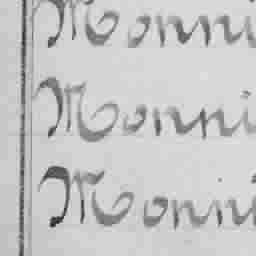 Monni
Monni
Monni